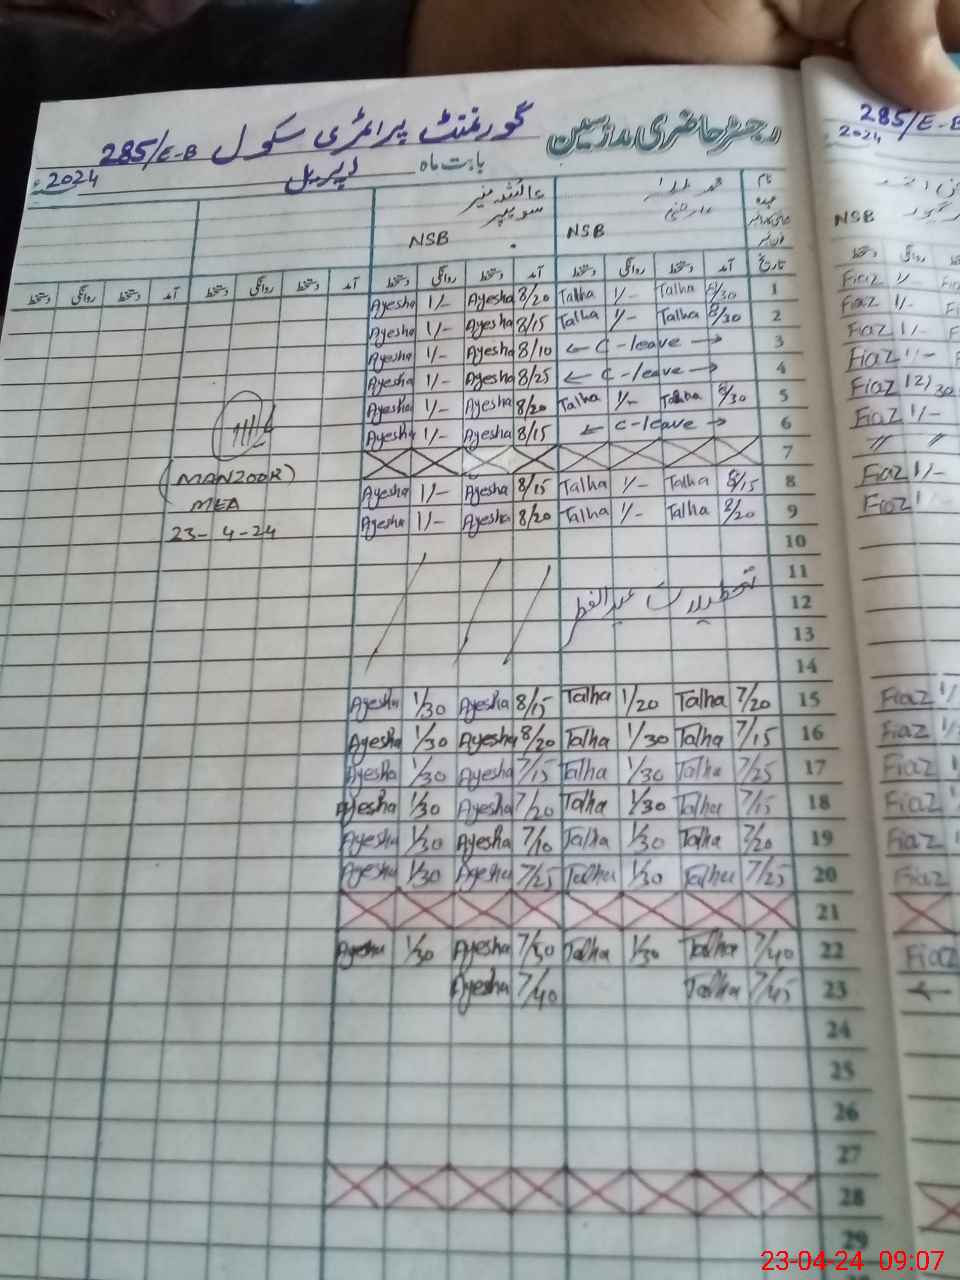 رجسٹر حاضری مدرسین گورنمنٹ پرائمری سکول 285/E-B
بابت ماہ اپریل 2024ء
285/E-B
2024
نام
عہدہ
تاریخ
محمد طلحہ
عائشہ منیر
سویپر
NSB NSB NSB
آمد دستخط روانگی دستخط آمد دستخط روانگی دستخط آمد دستخط روانگی دستخط آمد دستخط روانگی دستخط
Ayesha 1/- Ayesha 8/20 Talha 1/- Talha 8/30 1 Fiaz 1/-
Ayesha 1/- Ayesha 8/15 Talha 1/- Talha 8/30 2 Fiaz 1/-
Ayesha 1/- Ayesha 8/10 ← C-leave → 3 Fiaz 1/-
Ayesha 1/- Ayesha 8/25 ← C-leave → 4 Fiaz 1/-
Ayesha 1/- Ayesha 8/20 Talha 1/- Talha 8/30 5 Fiaz 12/30
Ayesha 1/- Ayesha 8/15 ← C-leave → 6 Fiaz 1/-
7 〃 〃
Ayesha 1/- Ayesha 8/15 Talha 1/- Talha 8/15 8 Fiaz 1/-
Ayesha 1/- Ayesha 8/20 Talha 1/- Talha 8/20 9 Fiaz
(MANZOOR)
MEA
23-4-24
10
11
تعطیلات عید الفطر
12
13
14
Ayesha 1/30 Ayesha 8/15 Talha 1/20 Talha 7/20 15 Fiaz
Ayesha 1/30 Ayesha 8/20 Talha 1/30 Talha 7/15 16 Fiaz
Ayesha 1/30 Ayesha 7/15 Talha 1/30 Talha 7/25 17 Fiaz
Ayesha 1/30 Ayesha 7/20 Talha 1/30 Talha 7/15 18 Fiaz
Ayesha 1/30 Ayesha 7/10 Talha 1/30 Talha 7/20 19 Fiaz
Ayesha 1/30 Ayesha 7/25 Talha 1/30 Talha 7/25 20 Fiaz
21
Ayesha 1/30 Ayesha 7/30 Talha 1/30 Talha 7/40 22 Fiaz
Ayesha 7/40 Talha 7/45 23
24
25
26
27
28
29
23-04-24 09:07